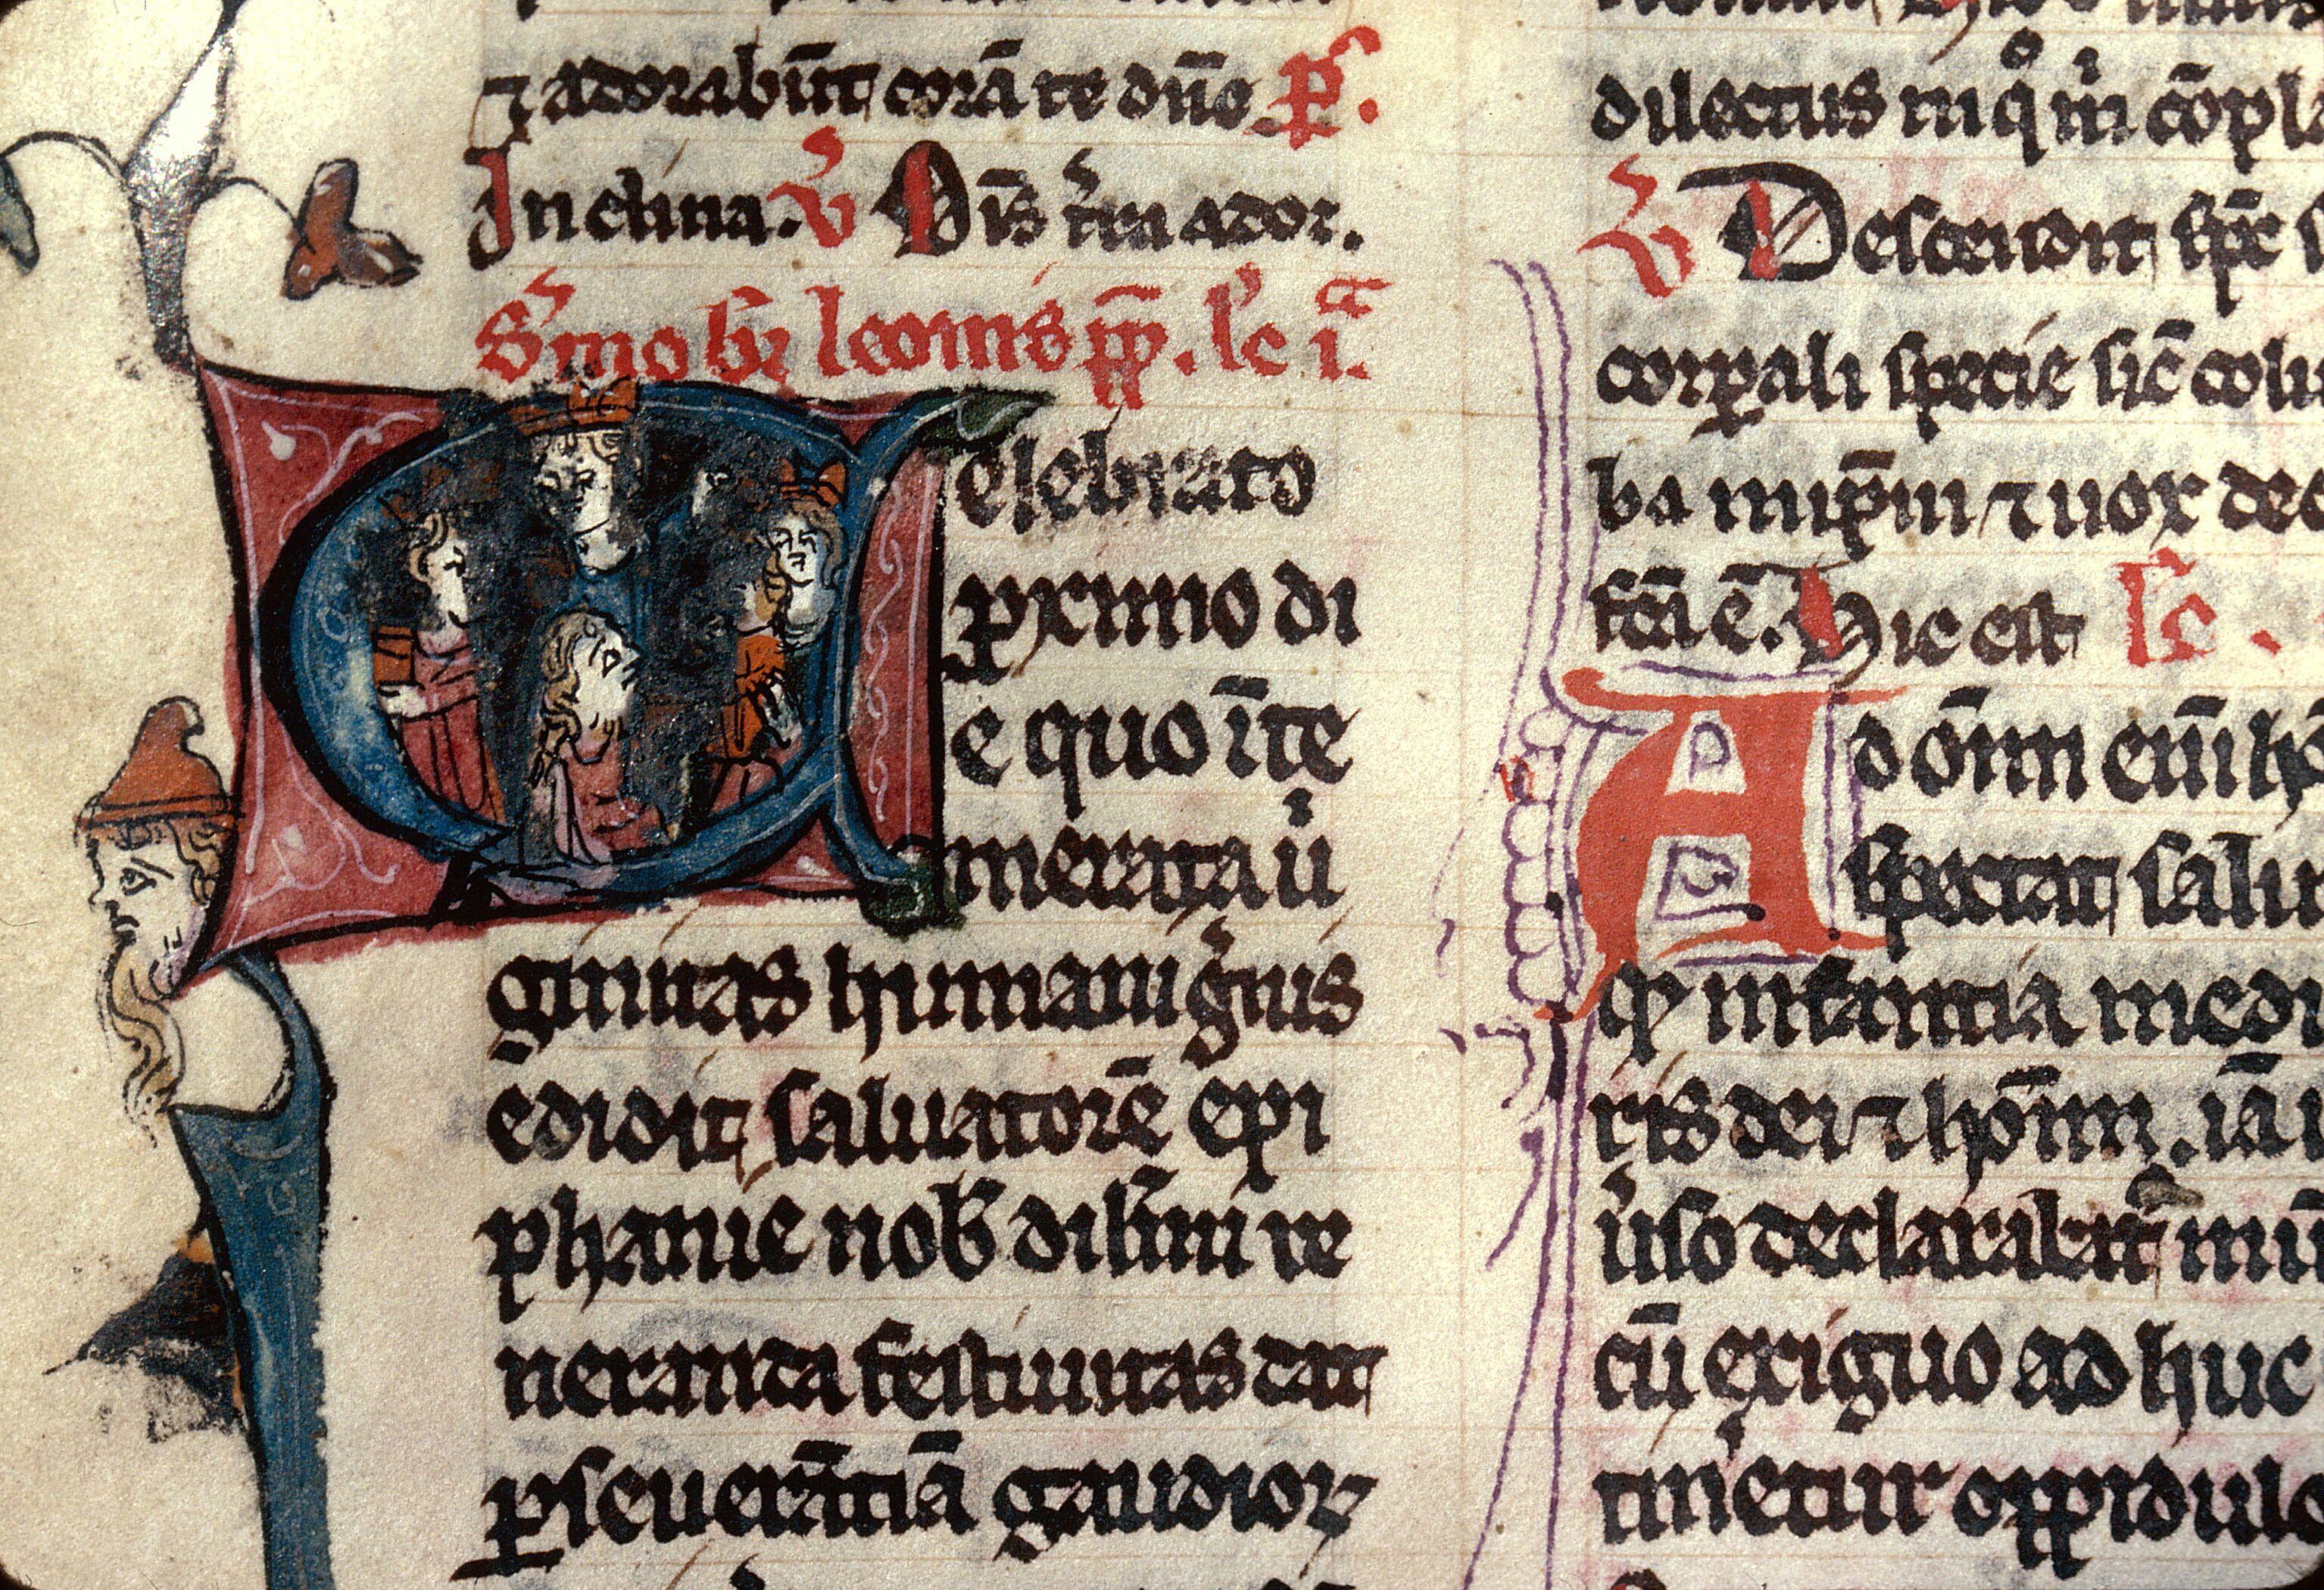 ⁊ adorabūt corā te dūe p̄s.
Inclina. v̄ Oīs t̓ra ador.
S̓mo bt̄i leonis pp̄. lc̄ i.ᵃ
Celebrato
ꝓximo di
e quo īte
merata ui̓
ginitas humani gn̓is
edidit saluatorē epi
phanie nob̄ dilc̄mi ue
neranda festiuitas dat
ꝑseuerātiā gaudioꝝ
dilectus in qͦ m̓ cōpla
v̄ Descendit sp̄c s
corꝑali specie sic̄ colū
ba in ip̄m ⁊ uox de c
fc̄a ē. Hic est lc̄.
Ad om̄n em̄ hō
spectat salu
qͥ infantia medi
ris dei ⁊ hōim. iā
ui̓so declarabat̓
cū exiguo ad huc
tin̓etur oppidulo